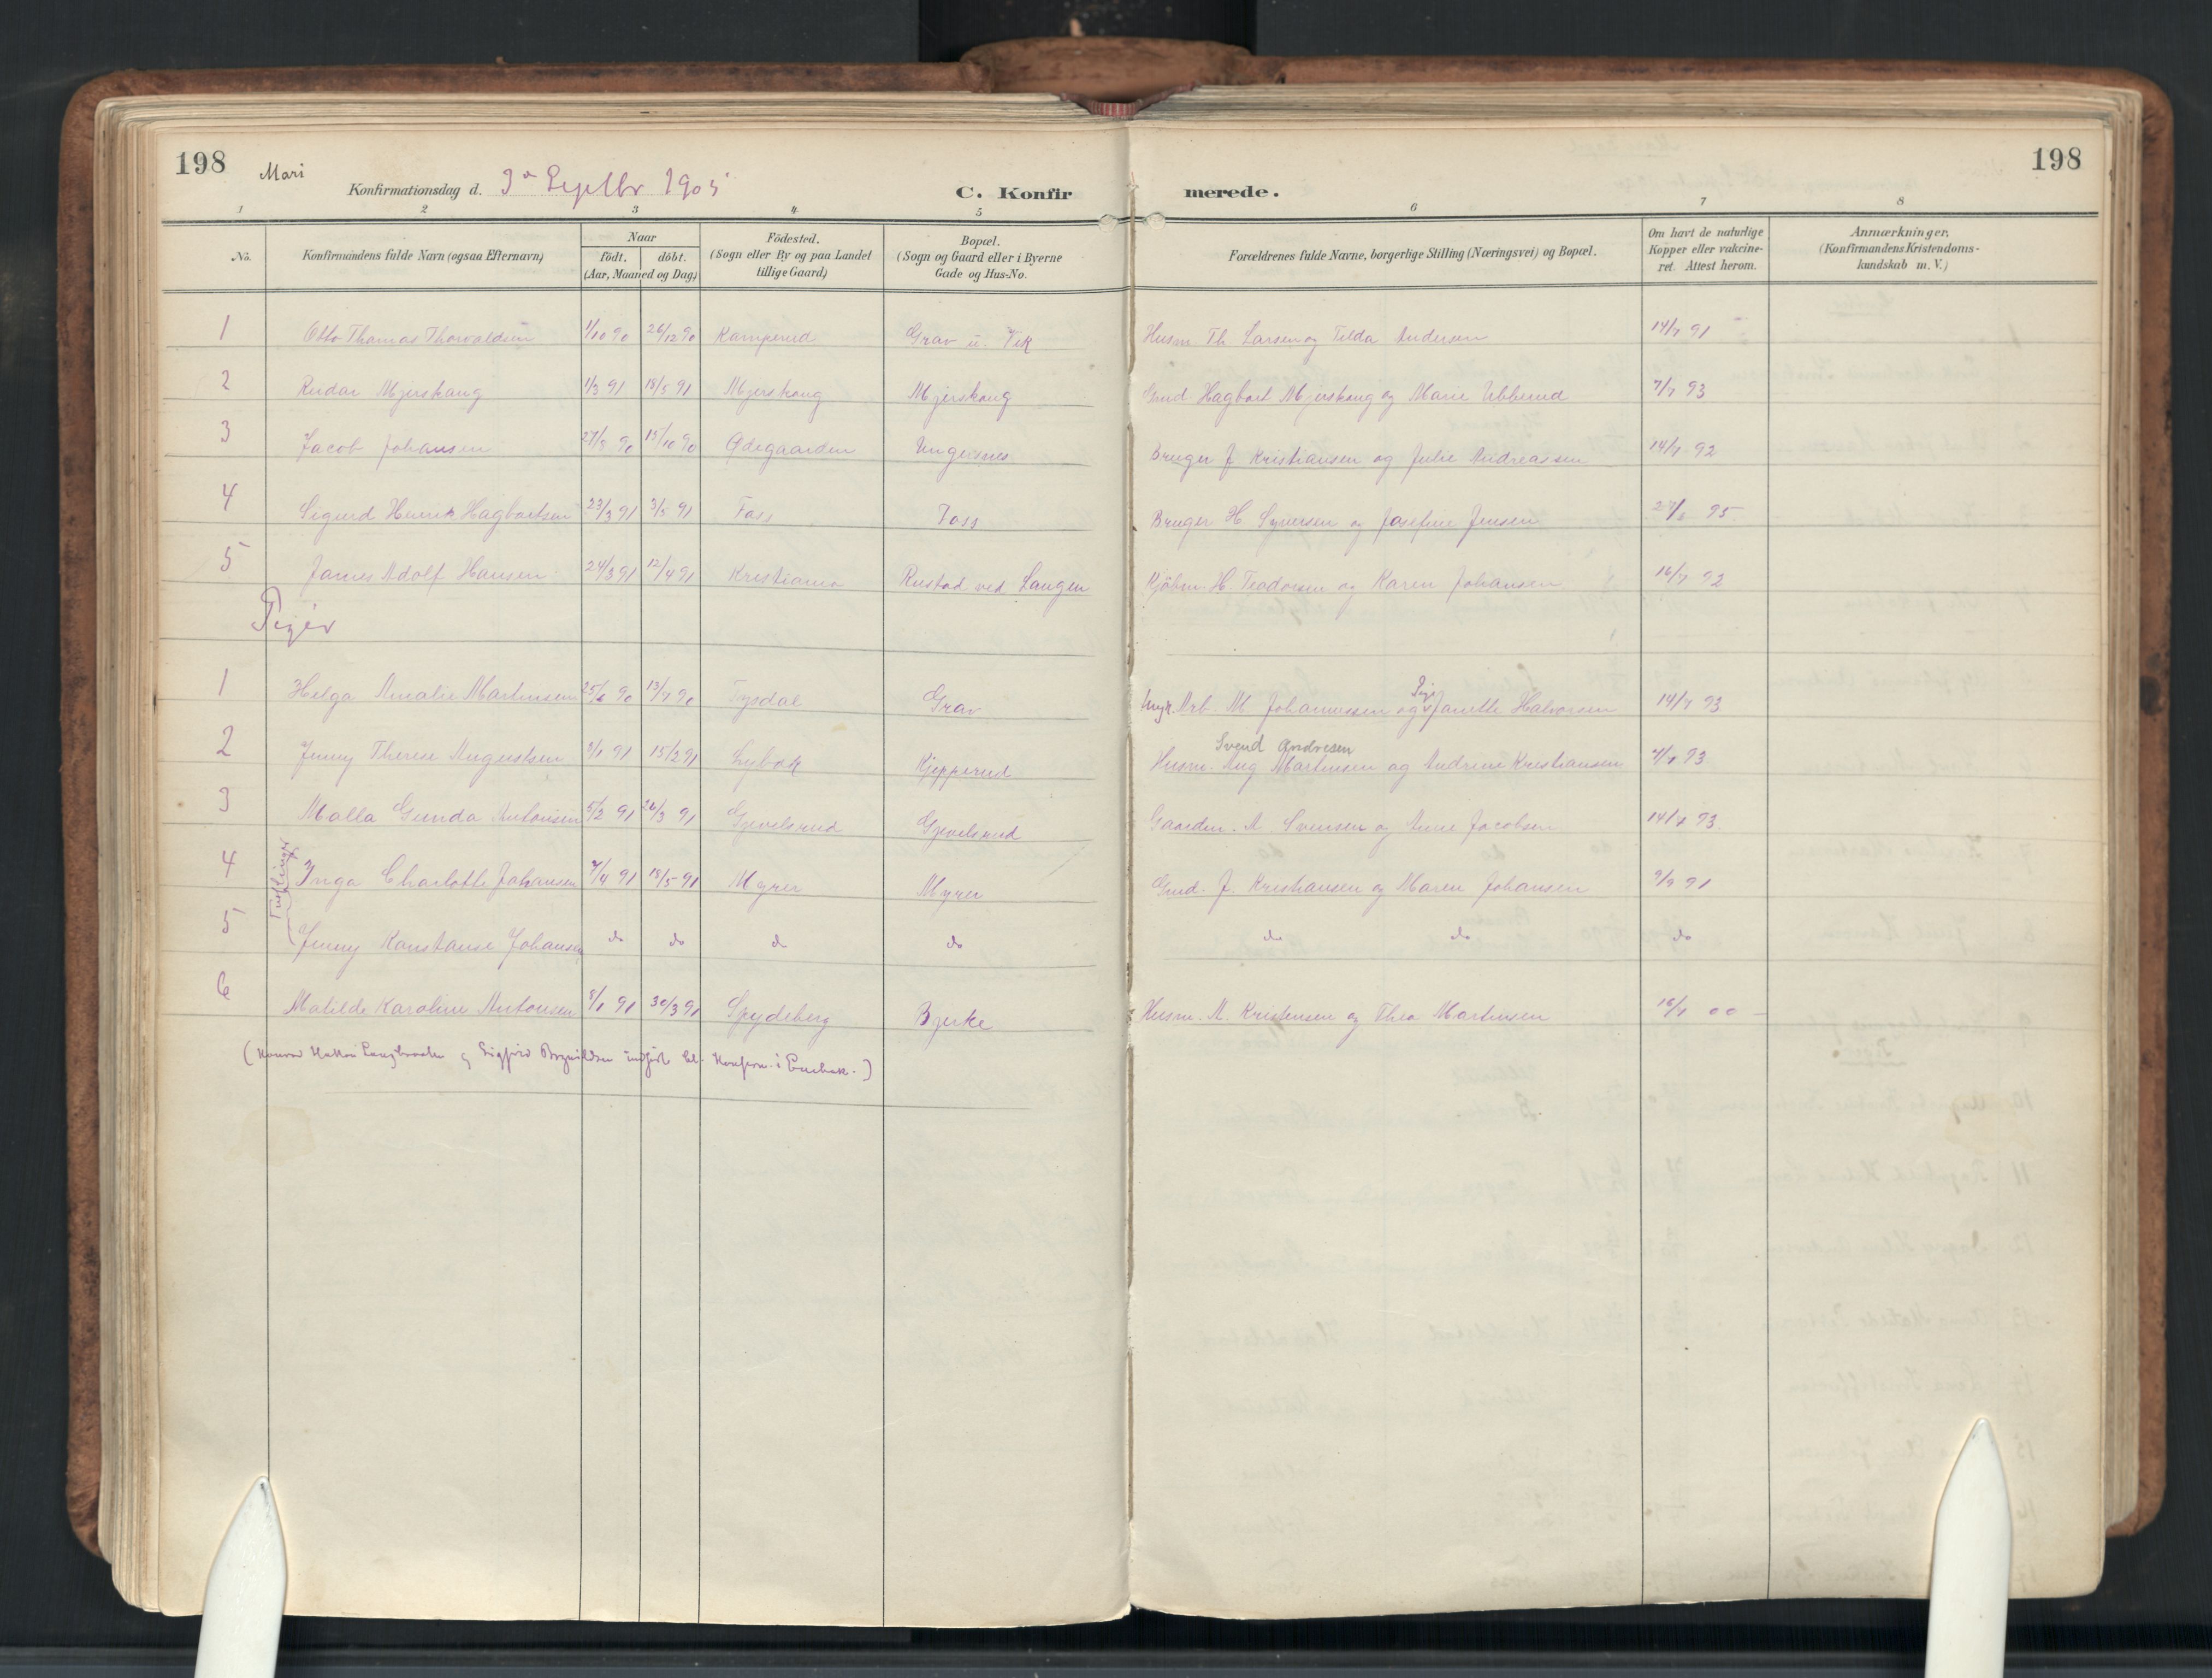 198
198
Mari
Konfirmationsdag d. 3 Septbr 1905
C. Konfirmerede.
1 2 3 4 5 6 7 8
No.
Konfirmandens fulde Navn (ogsaa Efternavn)
Naar
født. døbt.
(Aar, Maaned og Dag)
Fødested.
(Sogn eller By og paa Landet
tillige Gaard)
Bopæl.
(Sogn og Gaard eller i Byerne
Gade og Hus-No.
Forældrenes fulde Navne, borgerlige Stilling (Næringsvei) og Bopæl.
Om havt de naturlige
Kopper eller vakcine-
ret. Attest herom.
Anmærkninger.
(Konfirmandens Kristendoms-
kundskab m. V.)
1 Otto Thomas Thorvaldsen 1/10 90 26/12 90 Kamperud Grav u. Vik Husm Th Larsen og Tilda Andersen 14/7 91
2 Reidar Mjerskaug 1/3 91 18/5 91 Mjerskaug Mjerskaug Grd Hagbart Mjerskaug og Marie 7/7 93
3 Jacob Johansen 27/8 90 15/10 90 Ødegaarden Bruger J Kristiansen og Julie Andreassen 14/7 92
4 Sigurd Henrik Hagbartsen 23/3 91 3/5 91 Foss Foss Bruger H Syversen og Josefine Jensen 95
5 James Adolf Hansen 24/3 91 12/4 91 Kristiania Rustad ved Langen Kjøbm. H. Teodorsen og Karen Johansen 16/7 92
Piger
1 Helga Amalie Martinsen 25/6 90 13/7 90 Tysdal Grav Arb. M Johannessen og Pige Janette Halvorsen 14/7 93
Svend Andresen
2 Jenny Therese Augustsen 3/1 91 15/2 91 Lybæk Kjepperud Husm. Aug Martinsen og Andrine Kristiansen 93
3 Malla Gunda Antonsen 5/2 91 26/3 91 Gjevelsrud Gjevelsrud Gaardm. A Svensen og Anne Jacobsen 93
Tvillinger
4 Inga Charlotte Johansen 7/4 91 18/5 91 Myrer Myrer Grd. J. Kristiansen og Maren Johansen 9/9 91
5 Jenny Konstanse Johansen do do do do do do do
6 Matilde Karoline Antonsen 8/1 91 30/3 91 Spydeberg Bjerke Husm. A. Kristensen og Thea Martinsen 16/7 00
(Konrad Langbraaten og Sigfrid indført bl. Konfirm. i Enebak.)